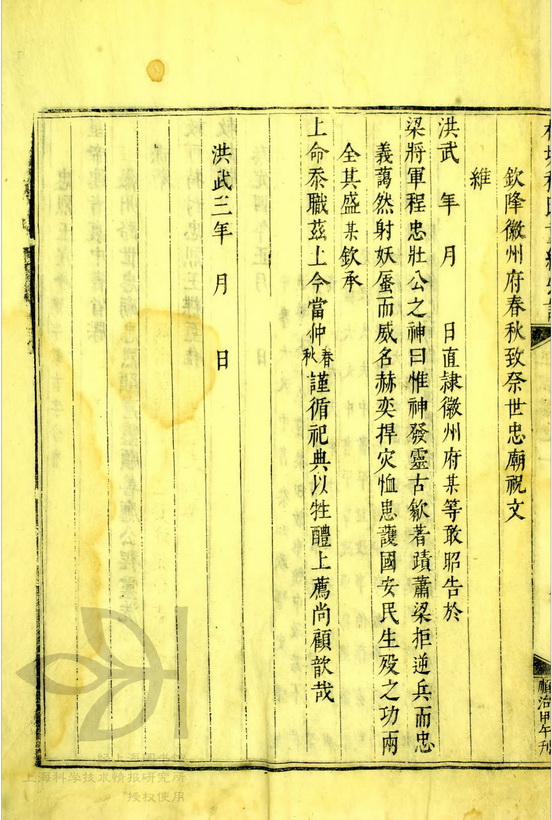 欽隆徽州府春秋致祭世忠廟祝文
維
洪武 年 月 日直隸徽州府某等敢昭告於
梁將軍程忠壯公之神曰惟神發靈古歙著蹟蕭梁拒逆兵而忠
義藹然射妖蜃而威名赫奕捍灾恤患護國安民生歿之功兩
全其盛某欽承
上命忝職茲土今當仲春秋謹循祀典以牲醴上薦尚顧歆哉
洪武三年 月 日
順治甲午刊
上海科学技术情报研究所
授权使用